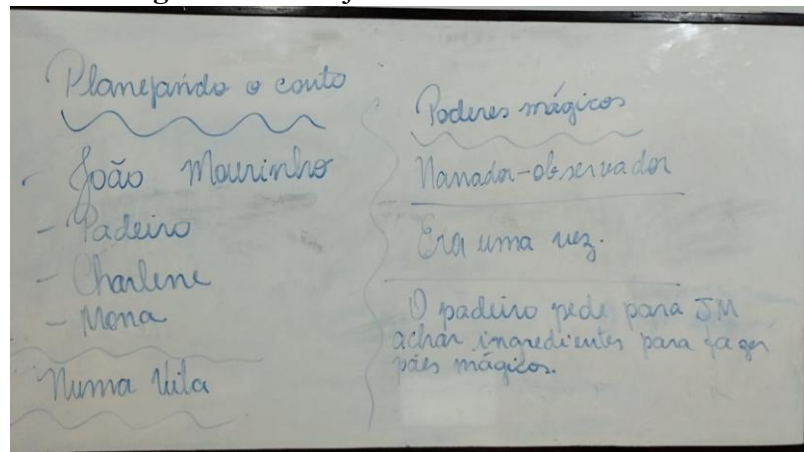 Planejando o conto
- João Mourinho
- Padeiro
- Charlene
- Mona
Numa Vila
Poderes mágicos
Narrador-observador
Era uma vez.
O padeiro pede para JM
achar ingredientes para fazer
pães mágicos.